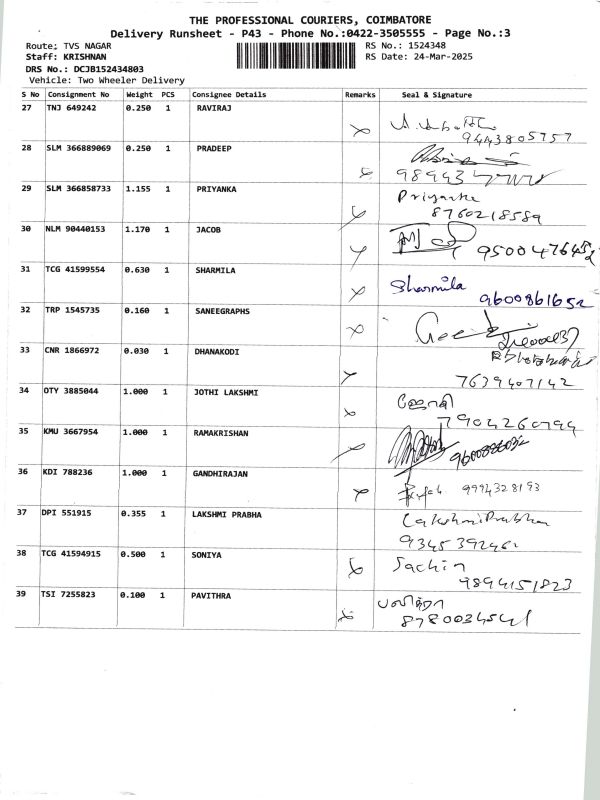 THE PROFESSIONAL COURIERS, COIMBATORE
Delivery Runsheet - P43 - Phone No.:0422-3505555 - Page No.:3
Route: TVS NAGAR RS No.: 1524348
Staff: KRISHNAN RS Date: 24-Mar-2025
DRS No.: DCJB152434803
Vehicle: Two Wheeler Delivery
S No Consignment No Weight PCS Consignee Details Remarks Seal & Signature
27 TNJ 649242 0.250 1 RAVIRAJ
9443805757
28 SLM 366889069 0.250 1 PRADEEP
29 SLM 366858733 1.155 1 PRIYANKA Priyanka
8760218589
30 NLM 90440153 1.170 1 JACOB
31 TCG 41599554 0.630 1 SHARMILA Sharmila
9600861652
32 TRP 1545735 0.160 1 SANEEGRAPHS
33 CNR 1866972 0.030 1 DHANAKODI
7639407142
34 OTY 3885044 1.000 1 JOTHI LAKSHMI ஜோதி
7904260794
35 KMU 3667954 1.000 1 RAMAKRISHAN
36 KDI 788236 1.000 1 GANDHIRAJAN
9994328193
37 DPI 551915 0.355 1 LAKSHMI PRABHA
38 TCG 41594915 0.500 1 SONIYA Sachin
9894151823
39 TSI 7255823 0.100 1 PAVITHRA பவித்ரா
8780034541